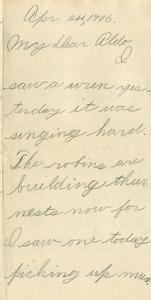 Apr. 24, 1906.
My dear Aldo
I
saw a wren yes-
terday it was
singing hard.
The robins are
building their
nests now for
I saw one today
picking up mud.